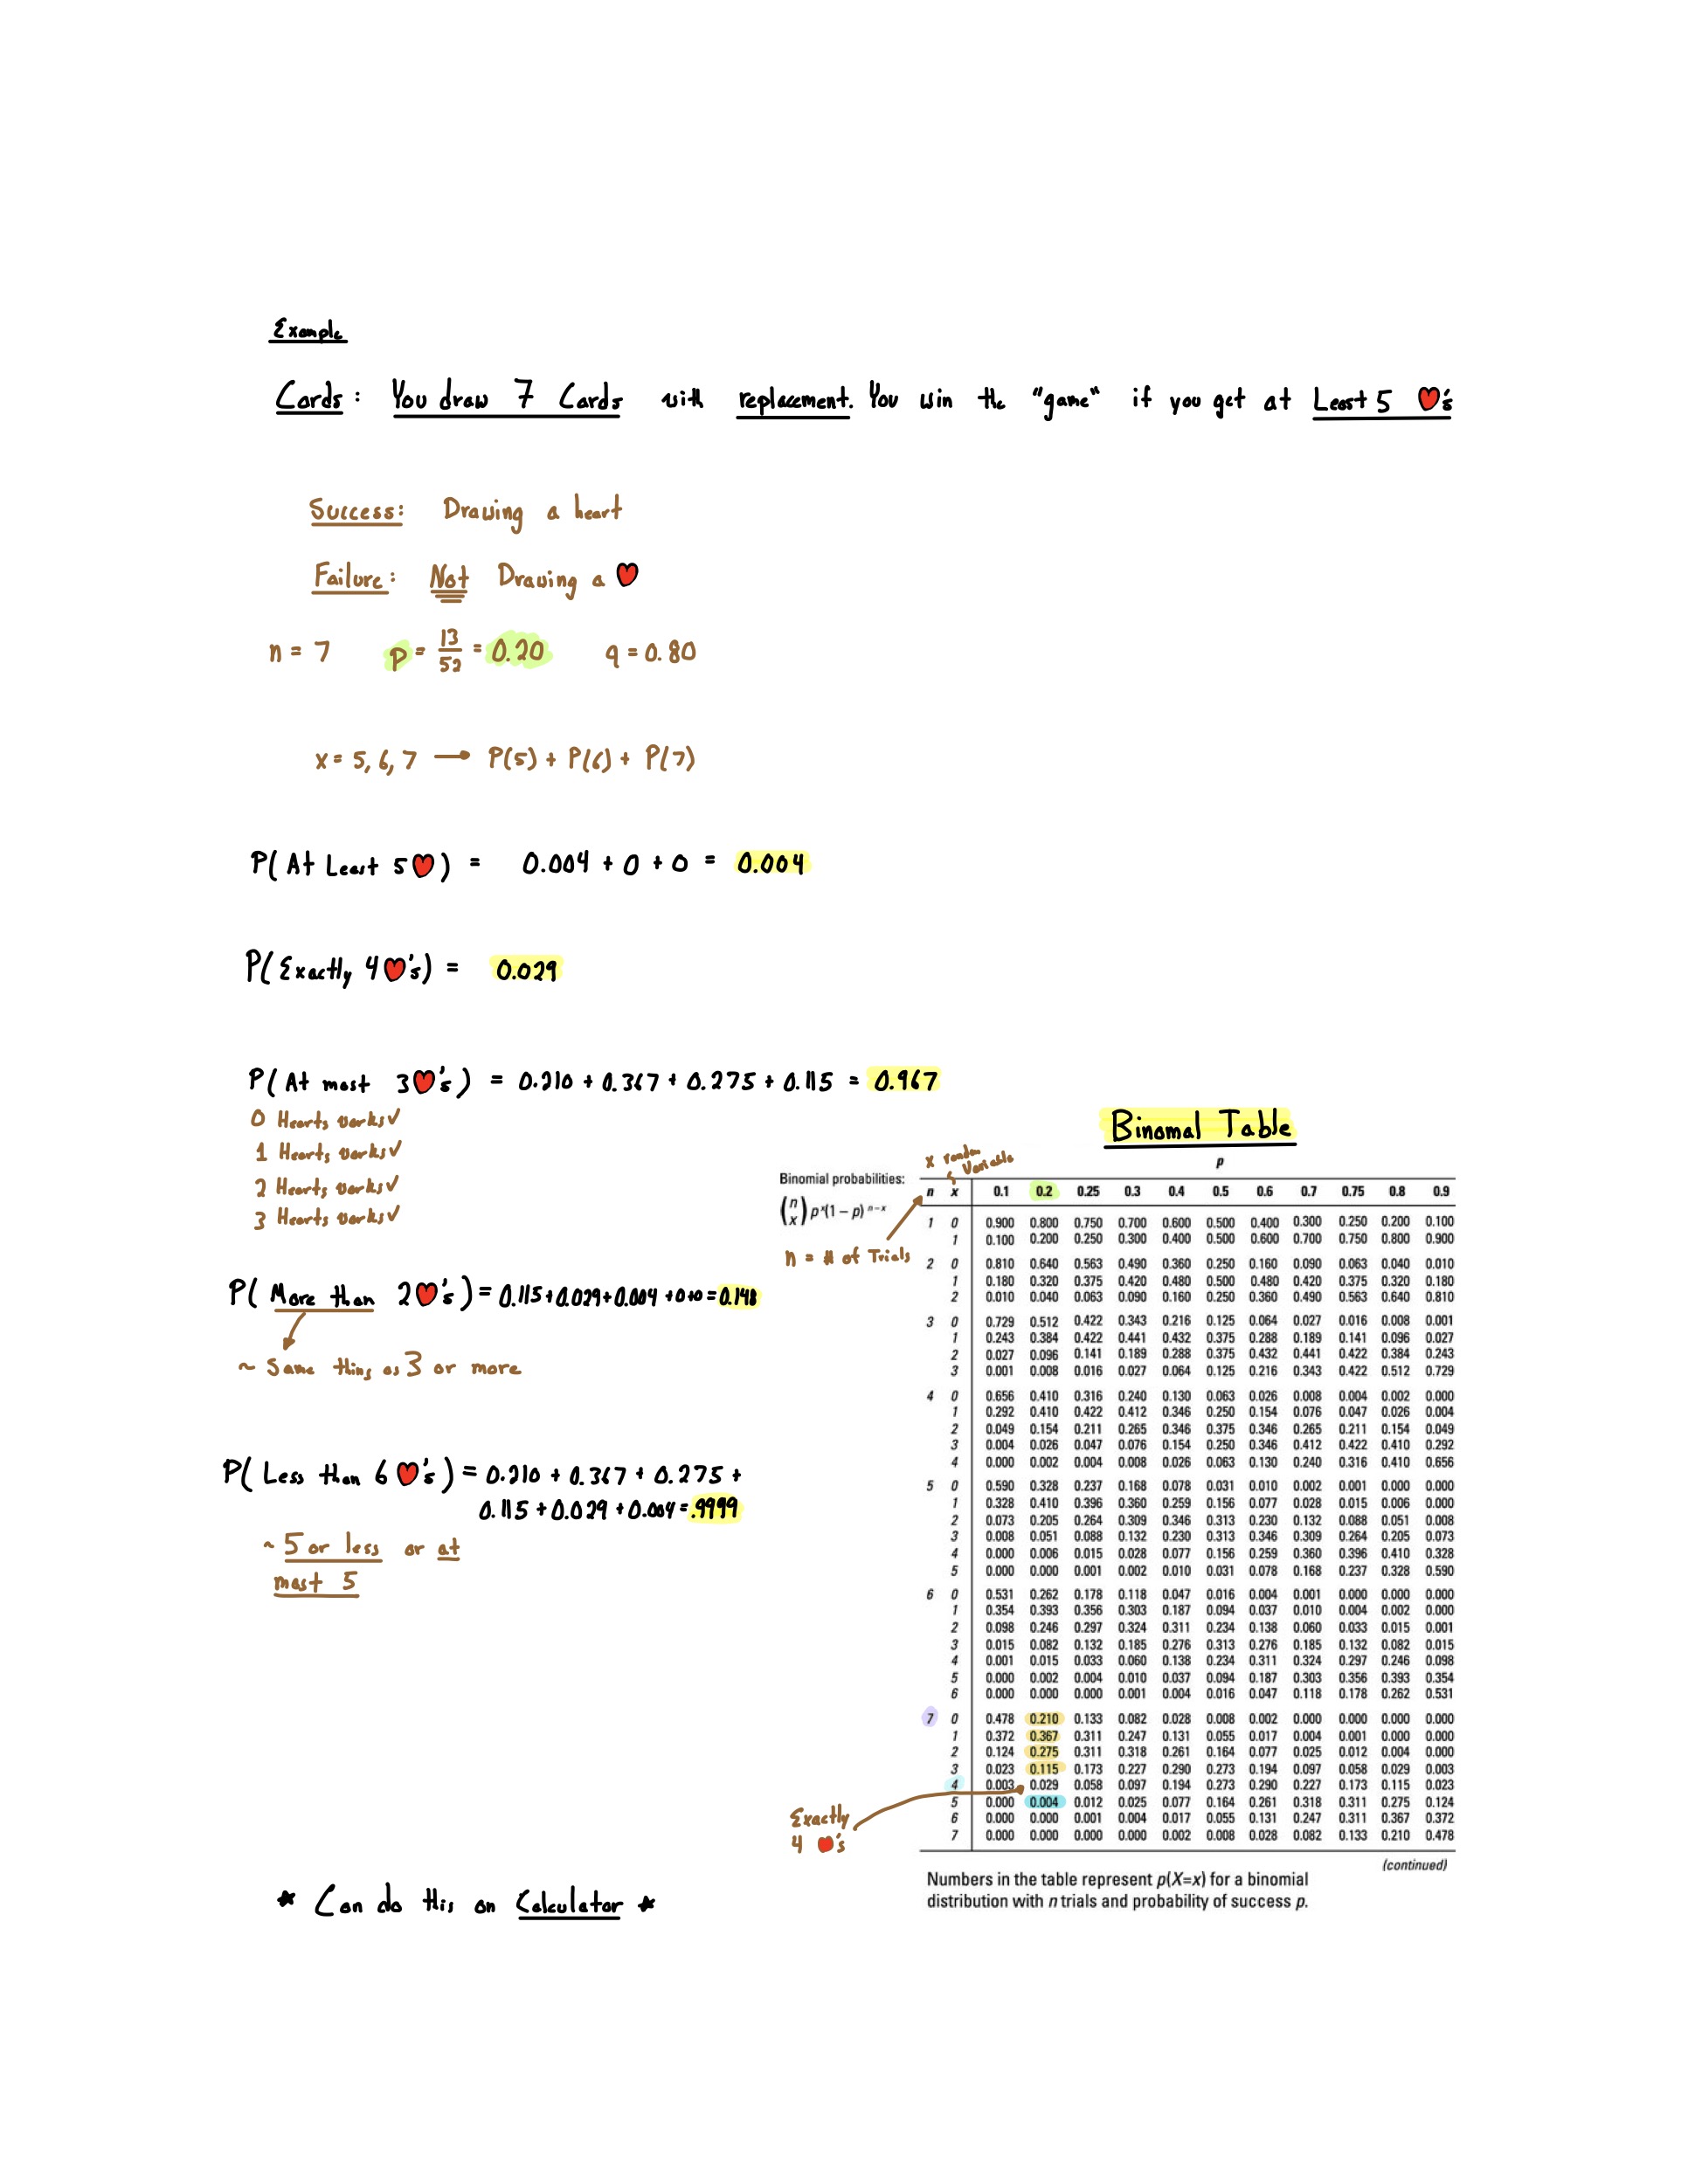 Example
Cards: You draw 7 Cards with replacement. You win the "game" if you get at Least 5 ♥'s
Success: Drawing a heart
Failure: Not Drawing a ♥
n = 7 p = 13/52 = 0.20 q = 0.80
x = 5, 6, 7 → P(5) + P(6) + P(7)
P( At Least 5♥) = 0.004 + 0 + 0 = 0.004
P( Exactly 4♥'s) = 0.029
P( At most 3♥'s) = 0.210 + 0.367 + 0.275 + 0.115 = 0.967
0 Hearts works✓
1 Hearts works✓
2 Hearts works✓
3 Hearts works✓
P( More than 2♥'s) = 0.115+0.029+0.004+0+0=0.148
~ Same thing as 3 or more
P( Less than 6♥'s) = 0.210 + 0.367 + 0.275 +
0.115 + 0.029 + 0.004 = .9999
~ 5 or less or at
most 5
* Can do this on Calculator *
Binomal Table
x random
Variable
Binomial probabilities:
(n x) p^x(1 – p)^n–x
n = # of Trials
p
n x 0.1 0.2 0.25 0.3 0.4 0.5 0.6 0.7 0.75 0.8 0.9
1 0 0.900 0.800 0.750 0.700 0.600 0.500 0.400 0.300 0.250 0.200 0.100
1 0.100 0.200 0.250 0.300 0.400 0.500 0.600 0.700 0.750 0.800 0.900
2 0 0.810 0.640 0.563 0.490 0.360 0.250 0.160 0.090 0.063 0.040 0.010
1 0.180 0.320 0.375 0.420 0.480 0.500 0.480 0.420 0.375 0.320 0.180
2 0.010 0.040 0.063 0.090 0.160 0.250 0.360 0.490 0.563 0.640 0.810
3 0 0.729 0.512 0.422 0.343 0.216 0.125 0.064 0.027 0.016 0.008 0.001
1 0.243 0.384 0.422 0.441 0.432 0.375 0.288 0.189 0.141 0.096 0.027
2 0.027 0.096 0.141 0.189 0.288 0.375 0.432 0.441 0.422 0.384 0.243
3 0.001 0.008 0.016 0.027 0.064 0.125 0.216 0.343 0.422 0.512 0.729
4 0 0.656 0.410 0.316 0.240 0.130 0.063 0.026 0.008 0.004 0.002 0.000
1 0.292 0.410 0.422 0.412 0.346 0.250 0.154 0.076 0.047 0.026 0.004
2 0.049 0.154 0.211 0.265 0.346 0.375 0.346 0.265 0.211 0.154 0.049
3 0.004 0.026 0.047 0.076 0.154 0.250 0.346 0.412 0.422 0.410 0.292
4 0.000 0.002 0.004 0.008 0.026 0.063 0.130 0.240 0.316 0.410 0.656
5 0 0.590 0.328 0.237 0.168 0.078 0.031 0.010 0.002 0.001 0.000 0.000
1 0.328 0.410 0.396 0.360 0.259 0.156 0.077 0.028 0.015 0.006 0.000
2 0.073 0.205 0.264 0.309 0.346 0.313 0.230 0.132 0.088 0.051 0.008
3 0.008 0.051 0.088 0.132 0.230 0.313 0.346 0.309 0.264 0.205 0.073
4 0.000 0.006 0.015 0.028 0.077 0.156 0.259 0.360 0.396 0.410 0.328
5 0.000 0.000 0.001 0.002 0.010 0.031 0.078 0.168 0.237 0.328 0.590
6 0 0.531 0.262 0.178 0.118 0.047 0.016 0.004 0.001 0.000 0.000 0.000
1 0.354 0.393 0.356 0.303 0.187 0.094 0.037 0.010 0.004 0.002 0.000
2 0.098 0.246 0.297 0.324 0.311 0.234 0.138 0.060 0.033 0.015 0.001
3 0.015 0.082 0.132 0.185 0.276 0.313 0.276 0.185 0.132 0.082 0.015
4 0.001 0.015 0.033 0.060 0.138 0.234 0.311 0.324 0.297 0.246 0.098
5 0.000 0.002 0.004 0.010 0.037 0.094 0.187 0.303 0.356 0.393 0.354
6 0.000 0.000 0.000 0.001 0.004 0.016 0.047 0.118 0.178 0.262 0.531
7 0 0.478 0.210 0.133 0.082 0.028 0.008 0.002 0.000 0.000 0.000 0.000
1 0.372 0.367 0.311 0.247 0.131 0.055 0.017 0.004 0.001 0.000 0.000
2 0.124 0.275 0.311 0.318 0.261 0.164 0.077 0.025 0.012 0.004 0.000
3 0.023 0.115 0.173 0.227 0.290 0.273 0.194 0.097 0.058 0.029 0.003
4 0.003 0.029 0.058 0.097 0.194 0.273 0.290 0.227 0.173 0.115 0.023
5 0.000 0.004 0.012 0.025 0.077 0.164 0.261 0.318 0.311 0.275 0.124
6 0.000 0.000 0.001 0.004 0.017 0.055 0.131 0.247 0.311 0.367 0.372
7 0.000 0.000 0.000 0.000 0.002 0.008 0.028 0.082 0.133 0.210 0.478
Exactly
4 ♥'s
(continued)
Numbers in the table represent p(X=x) for a binomial
distribution with n trials and probability of success p.